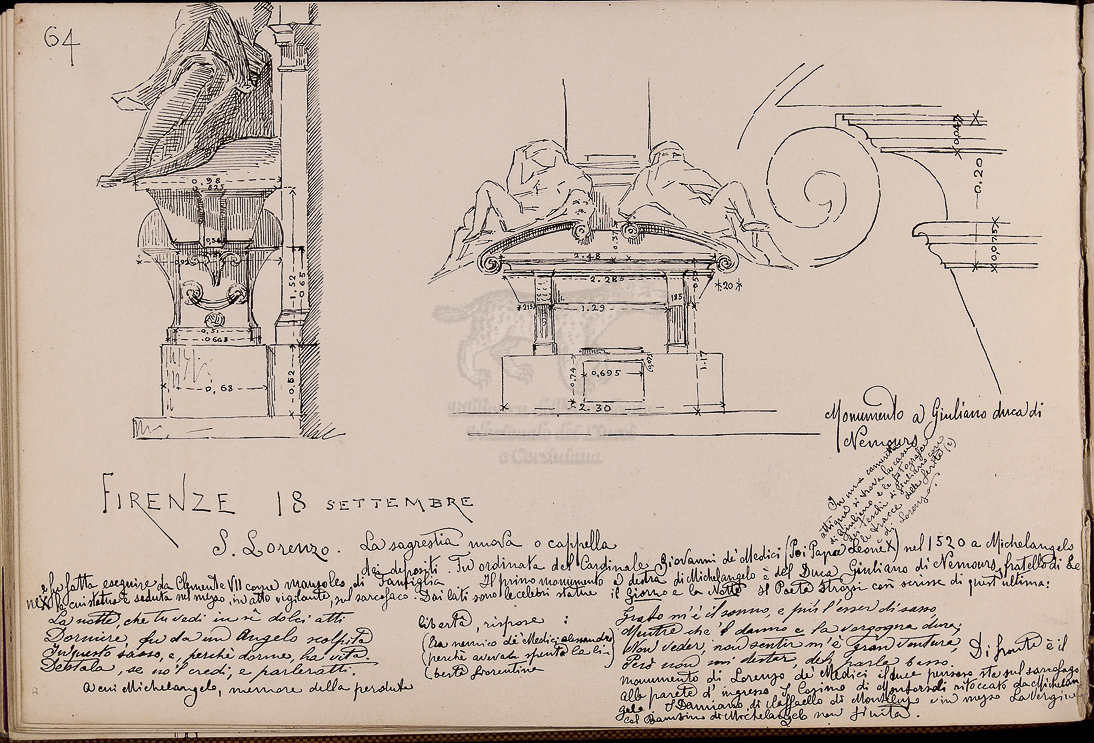 64
0.98
0.825
0.54
1.52
0.65
0.51
0.668
0.68
0.62
0.37
2.48
2.285
*20*
215
1.29
185
0.74
0.695
1.17
2.30
0.047
0.20
0.075
Monumento a Giuliano duca di
Nemours
In una camera
attigua si trova la cassa
di Giuliano e le fotografie
dei teschi di Giuliano con
le tracce delle ferite (?)
e di Lorenzo.
FIRENZE 18 SETTEMBRE
S. Lorenzo. La sagrestia nuova o cappella
dei depositi. Fu ordinata dal Cardinale Giovanni de' Medici (Poi Papa Leone X) nel 1520 a Michelangelo
e fu fatta eseguire da Clemente VII come mausoleo di famiglia. Il primo monumento a destra di Michelangelo è del Duca Giuliano di Nemours, fratello di Le
ne X la cui statua è seduta nel mezzo, in atto vigilante, sul sarcofago. Dai lati sono le celebri statue il Giorno e la Notte. Il Poeta Strozzi così scrisse di quest'ultima:
La notte, che tu vedi in sì dolci atti
Dormire, fu da un Angelo scolpita
In questo sasso, e, perchè dorme, ha vita.
Destala, se no'l credi, e parleratti.
A cui Michelangelo, memore della perduta
libertà, rispose:
(Era nemico de' Medici alessandro)
(perchè avevata spenta la li-)
(bertà fiorentina
Grato m'è il sonno, e più l'esser di sasso
Mentre che'l danno e la vergogna dura;
Non veder, non sentir m'è gran ventura,
Però non mi destar, deh, parla basso.
Di fronte è il
monumento di Lorenzo de' Medici il duce pensoso sta sul sarcofago
Alla parete d'ingresso S. Cosimo di Montorsoli ritoccato da Michelan
gelo. S. Damiano di Raffaello di Montelupo e in mezzo La Vergine
col Bambino di Michelangelo non finita.